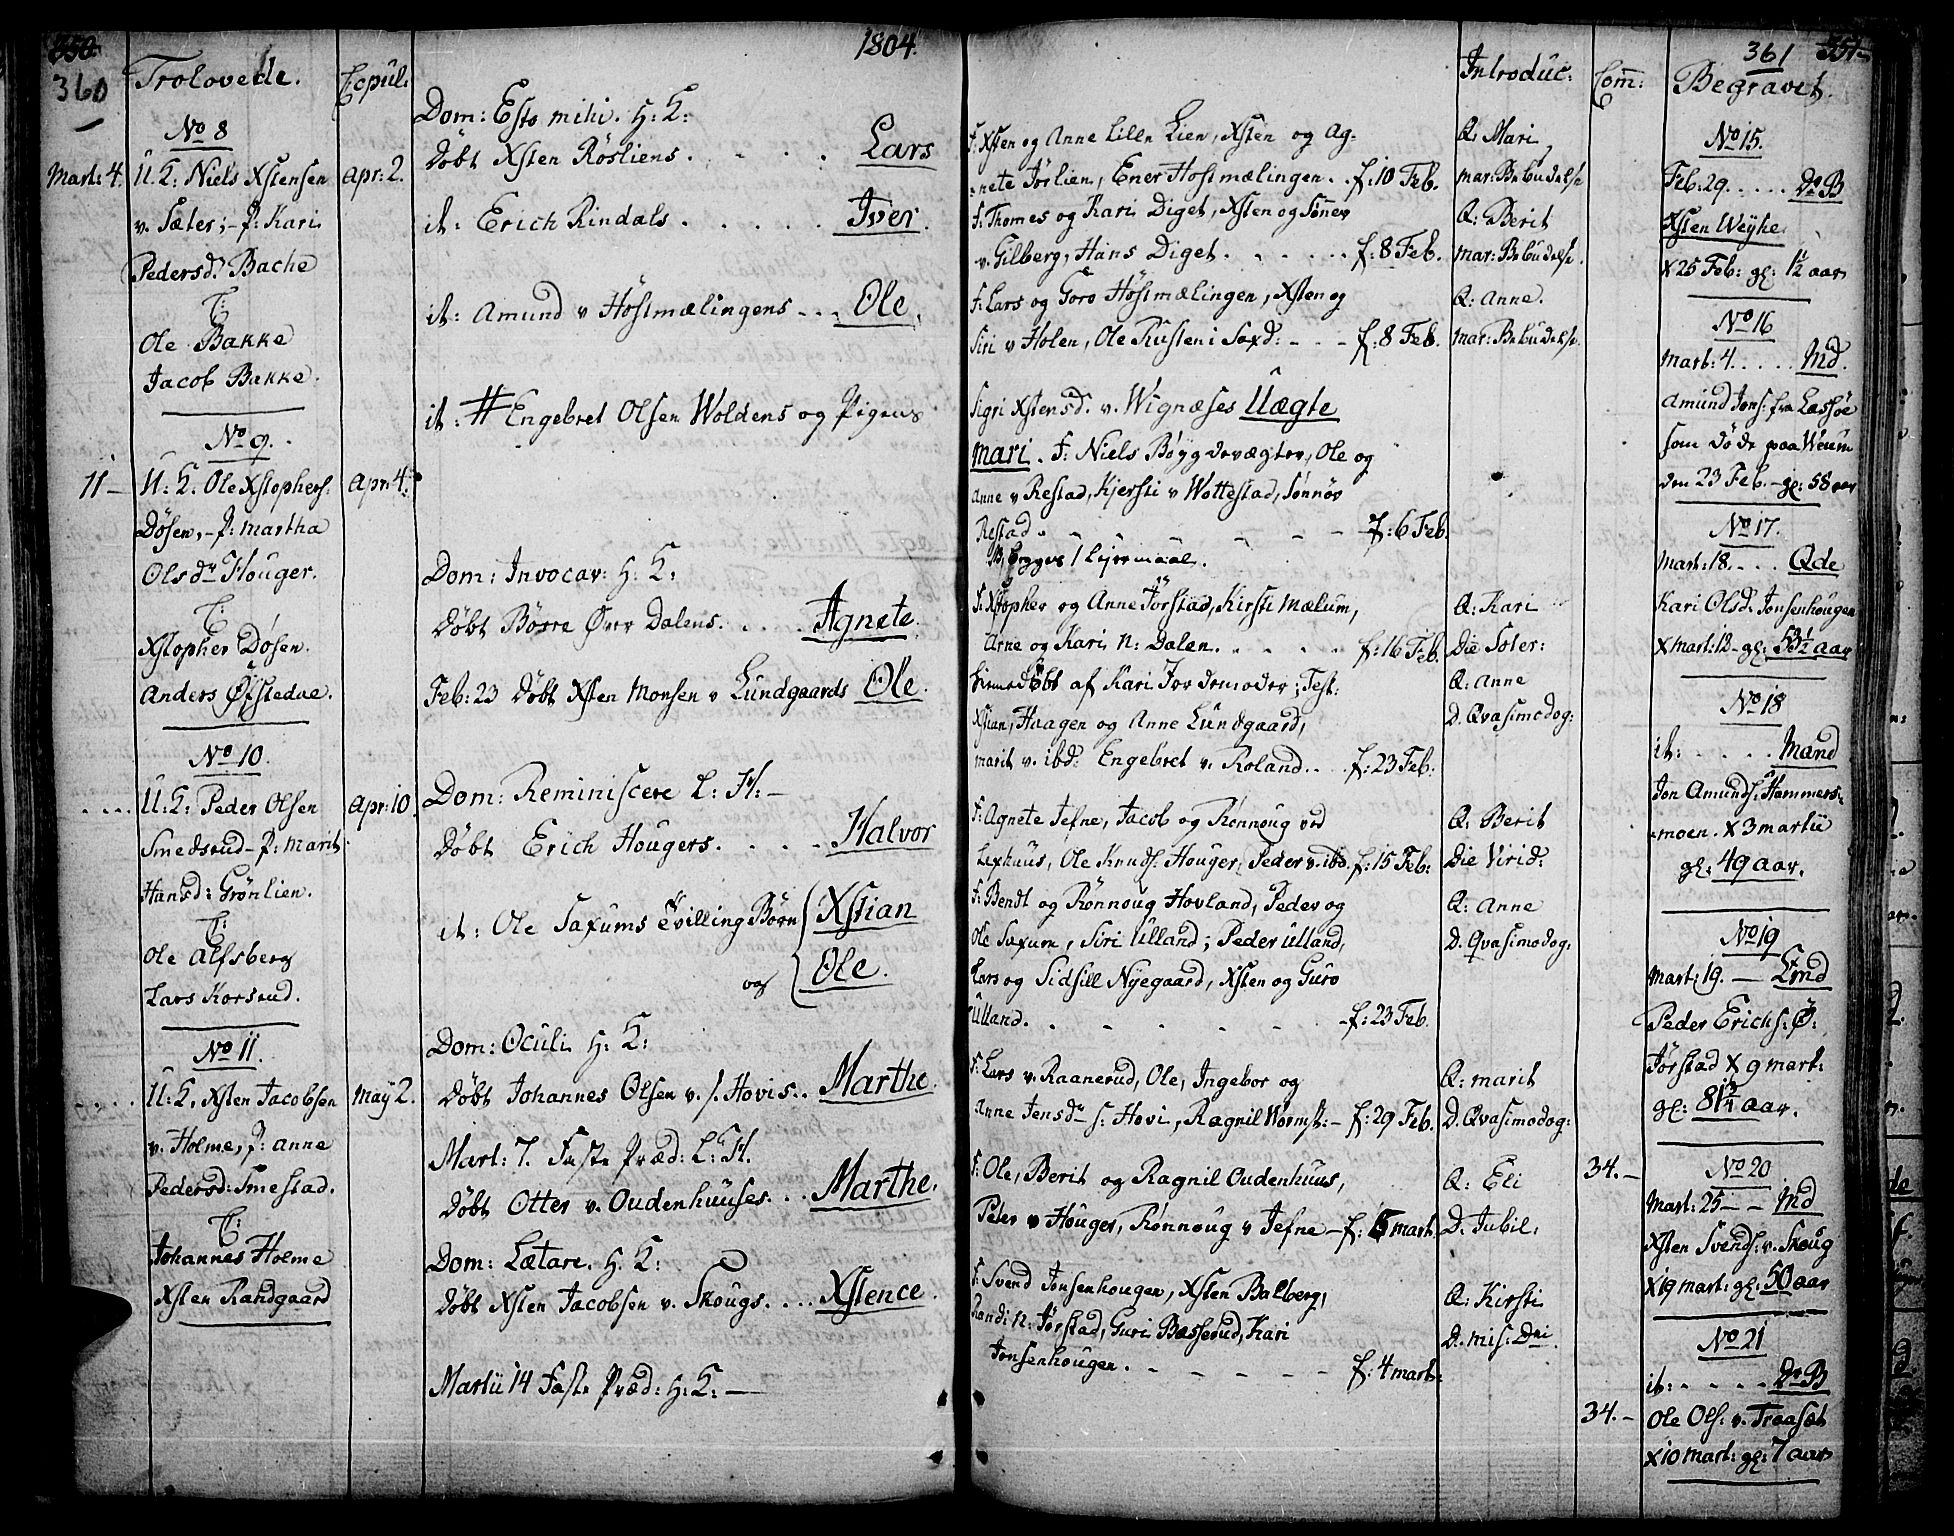 350
360
1804.
361
351
Trolovede.
Copul:
Introduc:
Com̄:
Begravet.
No 8
Mart: 4. U. K: Niels Xstensen
Apr: 2.
v. Sæter; - P: Kari
Pedersd. Bache
C:
Ole Bakke
Jacob Bakke.
No 9.
11 - U: K. Ole Xstophers:
Apr: 4.
Døsen, - P: Martha
Olsdr Houger.
C:
Xstopher Døsen.
Anders Øfstedae.
No 10.
U: K: Peder Olsen
Apr: 10.
Smedsrud - P: Marit
Hansd: Grønlien.
C:
Ole Alfsberg
Lars Korsrud.
No 11.
U: K. Xsten Jacobsen
May 2.
v. Holme, P: Anne
Pedersd: Smestad.
C:
Johannes Holme
Xsten Randgaard
Dom: Esto mihi. H: K:
Døbt Xsten Røsliens. . . . Lars
it: Erich Rindals . . . . . Iver.
it: Amund v Høstmælingens - - . Ole.
it: # Engebret Olsen Woldens og Pigens
Dom: Invocav: H: K:
Døbt Børre Øvre Dalens. . . . . Agnete.
Feb: 23 Døbt Xsten Monsen v Lundgaards Ole.
Dom: Reminiscere L: H: -
Døbt Erich Hougers. . . . - Halvor
it: Ole Saxums Tvilling Børn Xstian
og Ole.
Dom: Oculi H: K:
Døbt Johannes Olsen v. s. Hovis. . Marthe.
Mart: 7. Faste Præd: L: H.
Døbt Otter v. Oudenhuuses. . . Marthe.
Dom: Lætare. H: K:
Døbt Xsten Jacobsen v. Skougs. . . . Xstence.
Martii 14 Faste Præd: H: K: -
F: Xsten og Anne Lille Lien, Xsten og Ag-
nete Jørlien, Ener Høstmælingen. . f: 10 Feb.
F: Thomes og Kari Diget, Xsten og Sønev
v. Gilberg, Hans Diget. . . . . . . f: 8 Feb.
F: Lars og Goro Høstmælingen, Xsten og
Siri v Holen, Ole Rusten i Saxd: - - - f: 8 Feb.
Sigri Xstensd. v. Wignæses Uægte
Mari. F: Niels Bøygdevægter, Ole og
Anne v Restad, Kjersti v Wottestad, Sønnøv
Restad. - - - - f: 6 Feb.
B, begges 1 Lejermaal.
F: Xstopher og Anne Jørstad, Kirsti Mælum,
Arne og Kari N: Dalen. . . . . . f: 16 Feb.
hiemedøbt af Kari Jordemoder; Test:
Xstian, Haagen og Anne Lundgaard,
Marit v. ibd: Engebret v. Roland. . . f: 23 Feb:
F: Agnete Jefne, Jacob og Rønnoug ved
Lexhuus, Ole Knuds: Houger, Peder v. ibd. f: 15 Feb:
F: Bendt og Rønnoug Hovland, Peder og
Ole Saxum, Siri Ulland; Peder Ulland,
Lars og Sidsill Nyegaard, Xsten og Guro
Ulland. - - - - - - f: 23 Feb.
F: Lars v. Raanerud, Ole, Ingebor og
Anne Jensdr s: Hovi, Ragnil Wormst: - f: 29 Feb.
F: Ole, Berit og Ragnil Oudenhuus,
Peter v Houger, Rønnoug v Jefne - f: 5 Mart.
F: Svend Jonsenhougen, Xsten Balberg,
Randi N: Jørstad, Guri Bæsserud, Kari
Jonsenhougen. - - - - - f: 4 Mart:
Q: Mari
Mar: Bebudelse
Q: Berit
Mar: Bebudelse.
Q: Anne.
Mar: Bebudelse.
Q: Kari
Die Soler:
Q: Anne
D. Qvasimodog:
Q: Berit
Die Virid:
Q: Anne
D. Qvasimodog:
Q: Marit
D. Qvasimodog:
Q: Eli
D. Jubil:
Q: Kirsti
D. Mis: Dni.
34. -
34. -
No 15.
Feb: 29. . . . . Do B
Xsten Weyhe
X 25 Feb: gl: 1½ aar
No 16
Mart: 4. . . . . Md.
Amund Jons: fra Lessøe
som døde paa Weum
den 23 Feb. - gl: 58 aar
No 17.
Mart: 18. . . . Qde
Kari Olsd. Jonsenhougen
X Mart: 12 - gl: 53½ aar
No 18
it: . . . . Mand
Jon Amunds: Hammers-
moen. X 3 Martii
gl: 49 aar.
No 19
Mart: 19. - End
Peder Erichs: Ø:
Jørstad X 9 Mart:
gl: 81¾ aar.
No 20
Mart: 25 - - Md
Xsten Svends: v. Skoug
X 19 Mart: gl: 50 aar
No 21
it: . . . . Do B
Ole Ols: v. Traaset
X 10 Mart: gl: 7 aar